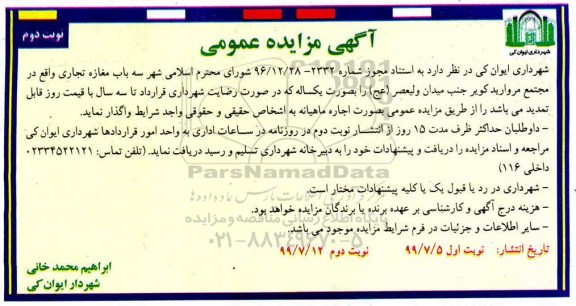 نوبت دوم
آگهی مزایده عمومی
شهرداری ایوان کی
شهرداری ایوان کی در نظر دارد به استناد مجوز شماره ۲۳۳۲- ۹۶/۱۲/۲۸ شورای محترم اسلامی شهر سه باب مغازه تجاری واقع در
مجتمع مروارید کویر جنب میدان ولیعصر (عج) را بصورت یکساله که در صورت رضایت شهرداری قرارداد تا سه سال با قیمت روز قابل
تمدید می باشد را از طریق مزایده عمومی بصورت اجاره ماهیانه به اشخاص حقیقی و حقوقی واجد شرایط واگذار نماید.
- داوطلبان حداکثر ظرف مدت ۱۵ روز از انتشار نوبت دوم در روزنامه در ساعات اداری به واحد امور قراردادها شهرداری ایوان کی
مراجعه و اسناد مزایده را دریافت و پیشنهادات خود را به دبیرخانه شهرداری تسلیم و رسید دریافت نماید. (تلفن تماس: ۰۲۳۳۴۵۲۲۱۲۱
داخلی ۱۱۶)
- شهرداری در رد یا قبول یک یا کلیه پیشنهادات مختار است.
- هزینه درج آگهی و کارشناسی بر عهده برنده یا برندگان مزایده خواهد بود.
- سایر اطلاعات و جزئیات در فرم شرایط مزایده موجود می باشد.
تاریخ انتشار: نوبت اول ۹۹/۷/۵ نوبت دوم ۹۹/۷/۱۲
ابراهیم محمد خانی
شهردار ایوان کی
ParsNamadData
پایگاه اطلاع رسانی مناقصه و مزایده
۰۲۱-۸۸۳۴۹۶۷۰-۵